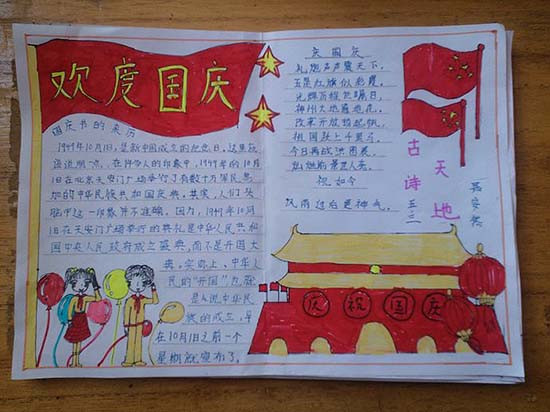 欢度国庆
国庆节的来历
1949年10月1日,是新中国成立的纪念日。这里应
该说明一点,在许多人的印象中,1949年的10月
1日在北京天安门广场举行了有数十万军民参
加的中华民族共和国庆典。其实,人们头
脑中这一印象并不准确。因为,1949年10月
1日在天安门广场举行的典礼是中华人民共和
国中央人民政府成立盛典,而不是开国大
典。实际上,中华人
民的"开国"
是说中华民
族的成立,早
在10月1日之前一个
星期就宣布了。
庆国庆
礼炮声声震天下,
五星红旗似彩霞。
光辉历程
神州大地遍地花。
改革开放
祖国跃上千里马。
今日再
祝如今
风雨过后更神气。
古诗
天地
五三
庆祝国庆